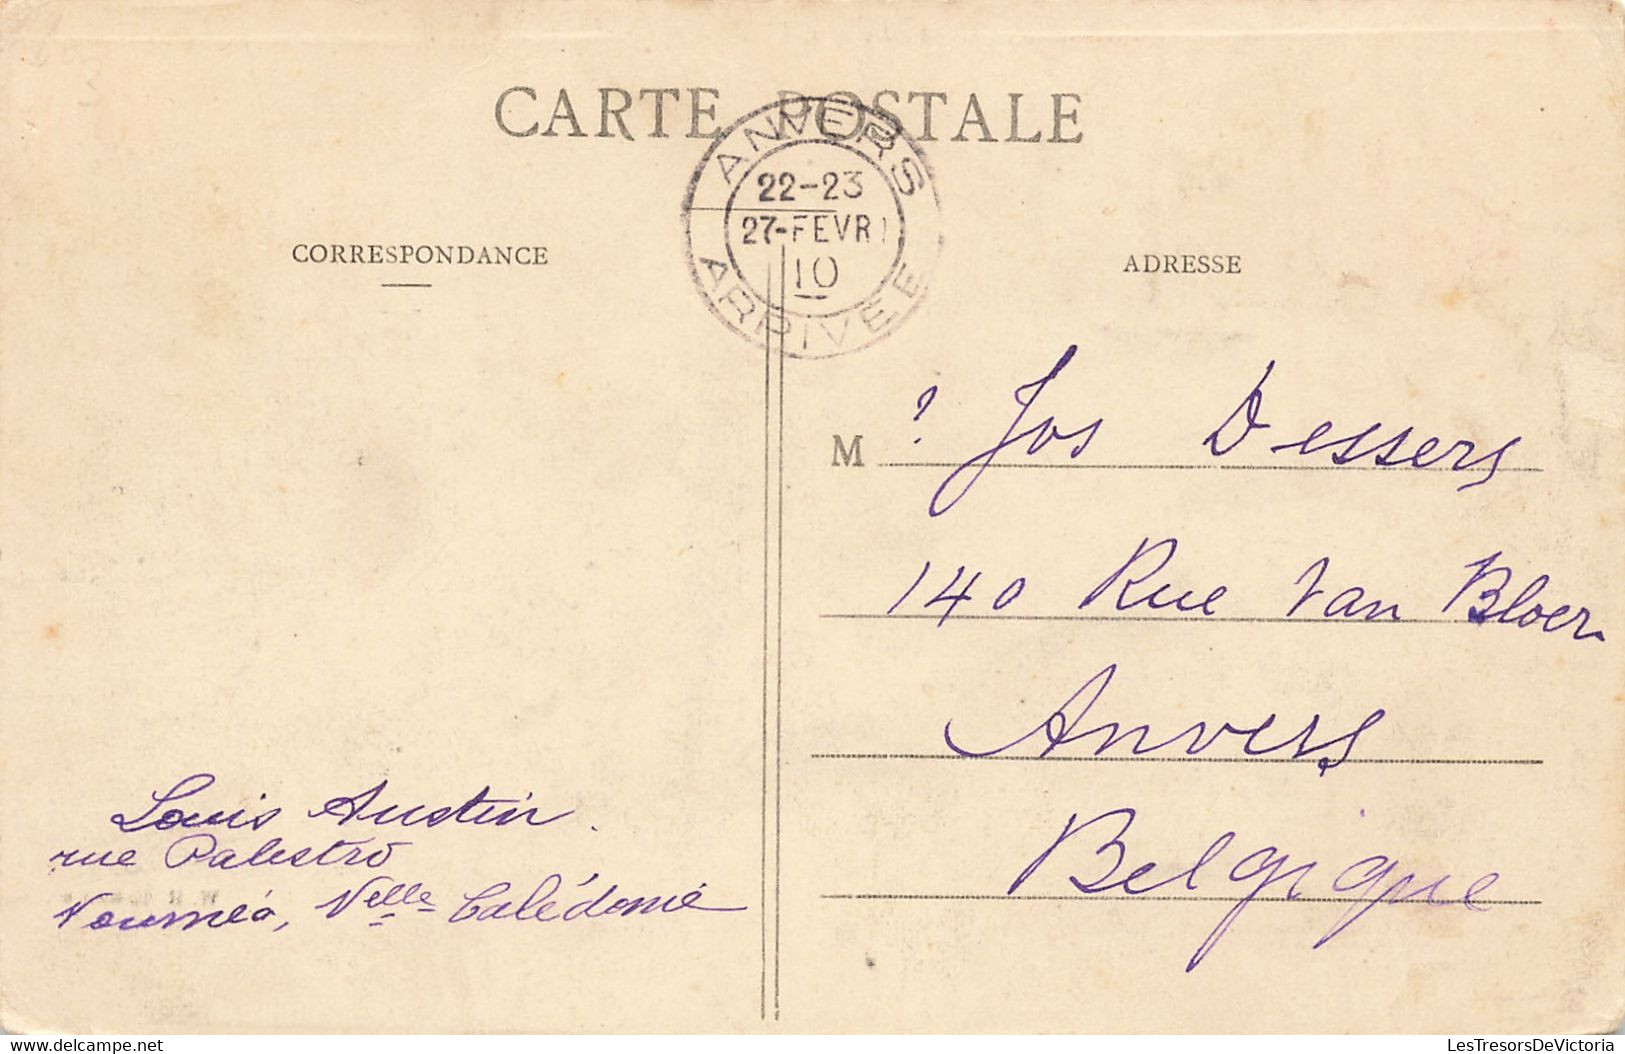 CARTE POSTALE
ANVERS
22-23
27-FEVR
10
ARRIVEE
CORRESPONDANCE
ADRESSE
M ? Jos Dessers
140 Rue Van Bloer
Anvers
Belgique
Louis Austin.
rue Palestro
Nouméa, Nelle Calédonie
delcampe.net
LesTresorsDeVictoria